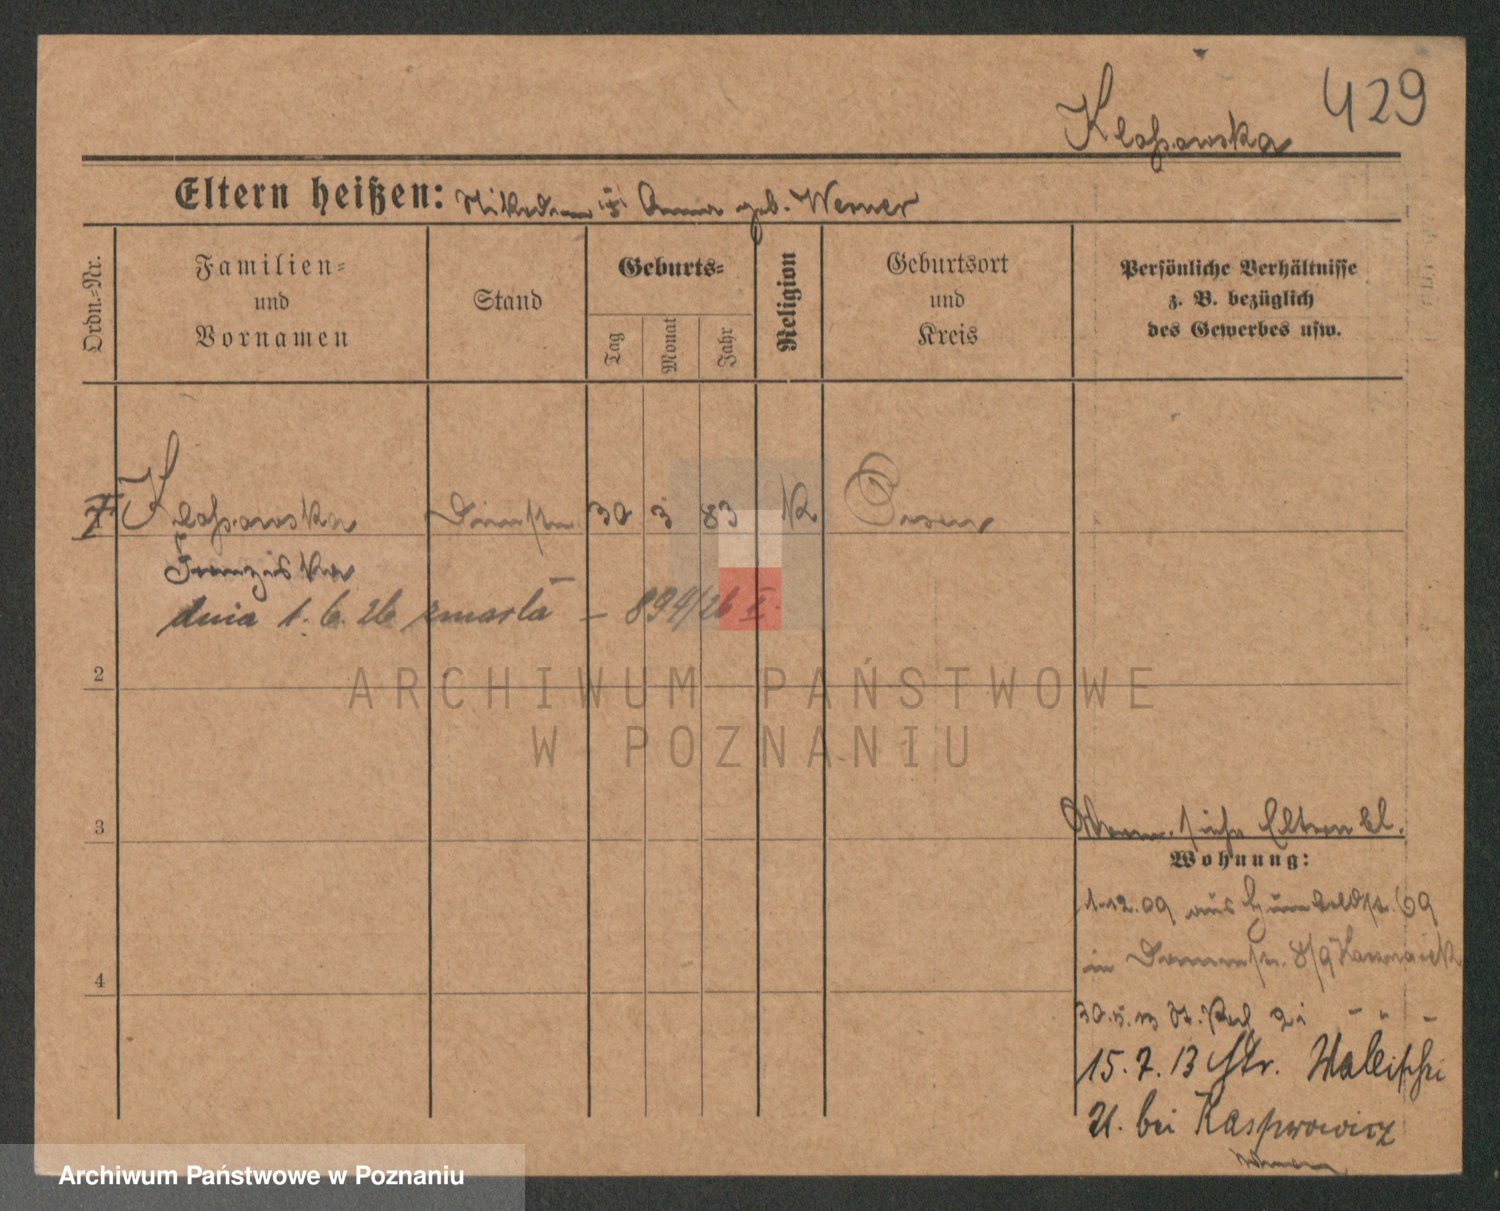 429
Kloßowska
Eltern heißen: Nikodem u. Anna geb. Werner
Ordn.-Nr.
Familien-
und
Vornamen
Stand
Geburts-
Tag
Monat
Jahr
Religion
Geburtsort
und
Kreis
Persönliche Verhältnisse
z. B. bezüglich
des Gewerbes usw.
Kloßowska 30 3 83 K Posen
Franziska
dnia 1. 6. 26 zmarła – 894/26 X.
2
ARCHIWUM PAŃSTWOWE
W POZNANIU
3
siehe Eltern bl.
Wohnung:
1.12.09 aus Humboldtstr. 69
in 8/9
15.7.13 Str. Wallischei
21. bei Kasprowicz
4
Archiwum Państwowe w Poznaniu